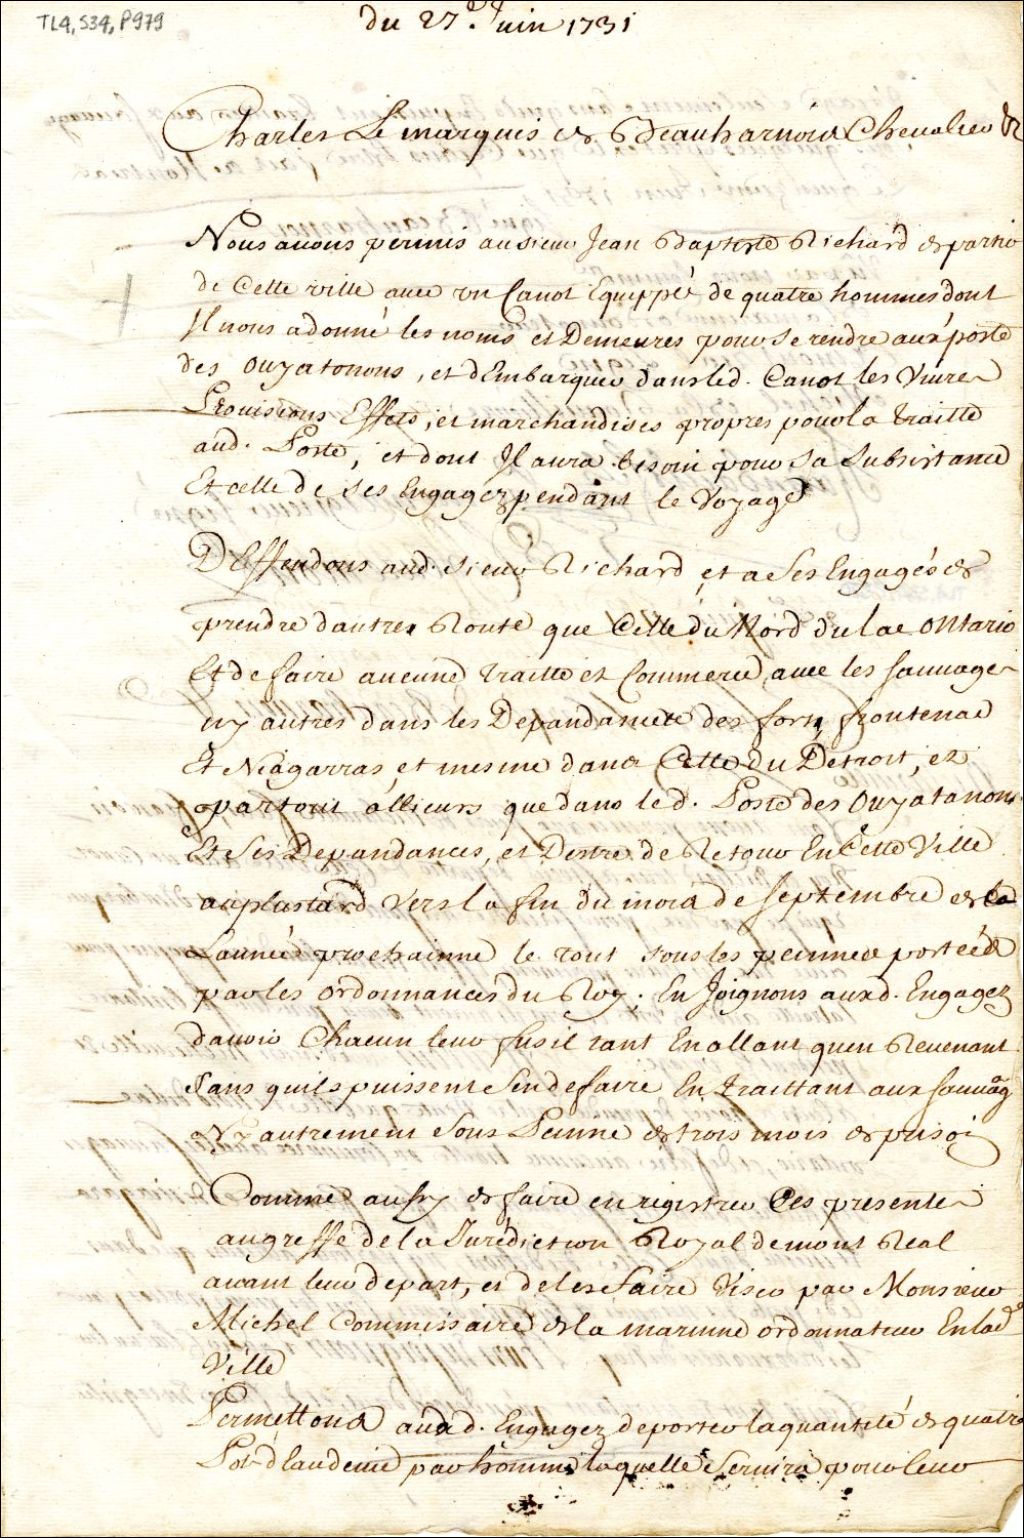 TL4, S34, P979
du 27e. Juin 1731
Charles Le marquis de Beauharnois Chevalier &c
Nous auons permis au sieur Jean Baptiste Richard de partir
de Cette ville auec un Canot Equippé de quatre hommes dont
Il nous a donné les noms et Demeures pour se rendre aux poste
des Ouyatonons, et d'Embarquer dans led. Canot les Viures
Prouisions Effets, et marchandises propres pour la traitte
aud. Poste, et dont Il aura besoin pour Sa Subsistance
Et celle de ses Engagez pendant le Voyage
Deffendons aud. sieur Richard et a Ses Engagés de
prendre dautres Route que Celle du Nord du lac Ontario
Et de faire aucune traitte et Commerce auec les sauuages
ny autres dans les Dependances des forts frontenac
Et Niagarras, et mesme dans Celle du Detroit, et
partout allieurs que dans led. Poste des Ouyatanons
Et Ses Dependances, et Destre de Retour En Cette Ville
au plus tard Vers la fin du mois de septembre de
Lannée prochainne le tout sous les peinnes portées
par les Ordonnances du Roy. En Joignons auxd. Engagez
dauoir Chacun leur fusil tant En allant quen Reuenant
Sans quils puissent Sen defaire En traittant aux sauuag
Ny autrement Sous Peinne de trois mois de prison
Comme aussy de faire enregistrer Ces presentes
au greffe de la Jurediction Royal de mont Real
auant leur depart, et de les faire Viser par Monsieur
Michel Commissaire de la marinne ordonnateur En lad.
Ville
Permettons auxd. Engagez de porter la quantité de quatre
Pots d'eau de uie par homme laquelle Seruira pour leur